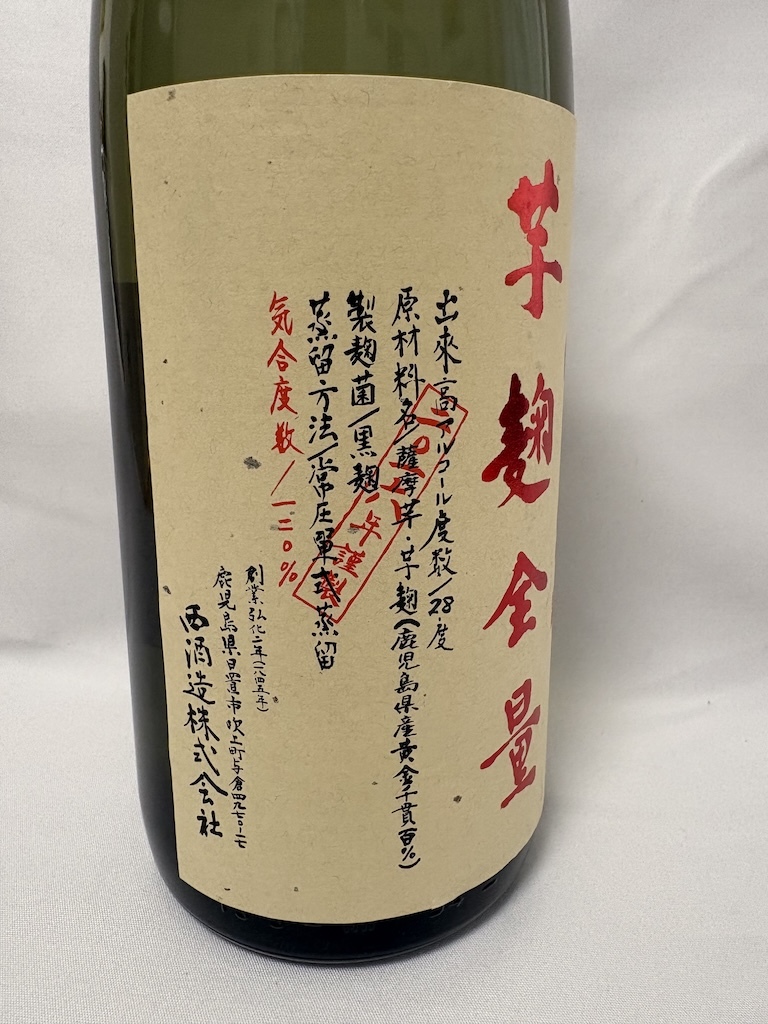 芋麹全量
出來高アルコール度数/28度
原材料名/薩摩芋・芋麹(鹿児島県産黄金千貫百%)
製麹菌/黒麹
蒸留方法/常圧單式蒸留
気合度数/一二〇%
年謹製
創業弘化二年(一八四五年)
鹿児島県日置市吹上町与倉四九七〇-二七
西酒造株式会社